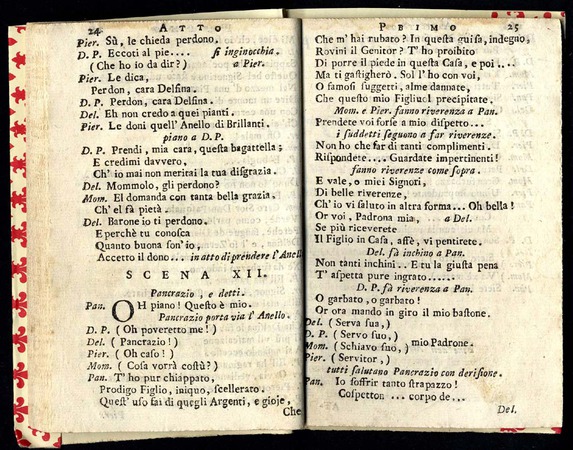 24 ATTO
Pier. Sù, le chieda perdono.
D. P. Eccoti al pie.... si inginocchia.
( Che ho io da dir? ) a Pier.
Pier. Le dica,
Perdon, cara Delfina.
D. P. Perdon, cara Delfina.
Del. Eh non credo a quei pianti.
Pier. Le doni quell' Anello di Brillanti.
piano a D. P.
D. P. Prendi, mia cara, questa bagattella;
E credimi davvero,
Ch' io mai non meritai la tua disgrazia.
Del. Mommolo, gli perdono?
Mom. El domanda con tanta bella grazia,
Ch' el fà pietà.
Del. Barone io ti perdono.
E perchè tu conosca
Quanto buona son' io,
Accetto il dono... in atto di prendere l' Anello
SCENA XII.
Pancrazio, e detti.
Pan. OH piano! Questo è mio.
Pancrazio porta via l' Anello.
D. P. ( Oh poveretto me! )
Del. ( Pancrazio! )
Pier. ( Oh caso! )
Mom. ( Cosa vorrà costù? )
Pan. T' ho pur chiappato,
Prodigo Figlio, iniquo, scellerato.
Quest' uso fai di quegli Argenti, e gioje,
Che
PRIMO 25
Che m' hai rubato? In questa guisa, indegno,
Rovini il Genitor? T' ho proibito
Di porre il piede in questa Casa, e poi....
Ma ti gastigherò. Sol l' ho con voi,
O famosi suggetti, alme dannate,
Che questo mio Figliuol precipitate.
Mom. e Pier. fanno riverenza a Pan.
Prendete voi forse a mio dispetto...
i suddetti seguono a far riverenze.
Non ho che far di tanti complimenti.
Rispondete.... Guardate impertinenti!
fanno riverenze come sopra.
E vale, o miei Signori,
Di belle riverenze,
Ch' io vi saluto in altra forma... Oh bella!
Or voi, Padrona mia, a Del.
Se più riceverete
Il Figlio in Casa, affè, vi pentirete.
Del. fà inchino a Pan.
Non tanti inchini.. E tu la giusta pena
T' aspetta pure ingrato......
D. P. fà riverenza a Pan.
O garbato, o garbato!
Or ora mando in giro il mio bastone.
Del. ( Serva sua,)
D. P. ( Servo suo,)
Mom. ( Schiavo suo,) mio Padrone.
Pier. ( Servitor,)
tutti salutano Pancrazio con derisione.
Pan. Io soffrir tanto strapazzo!
Cospetton ... corpo de...
Del.